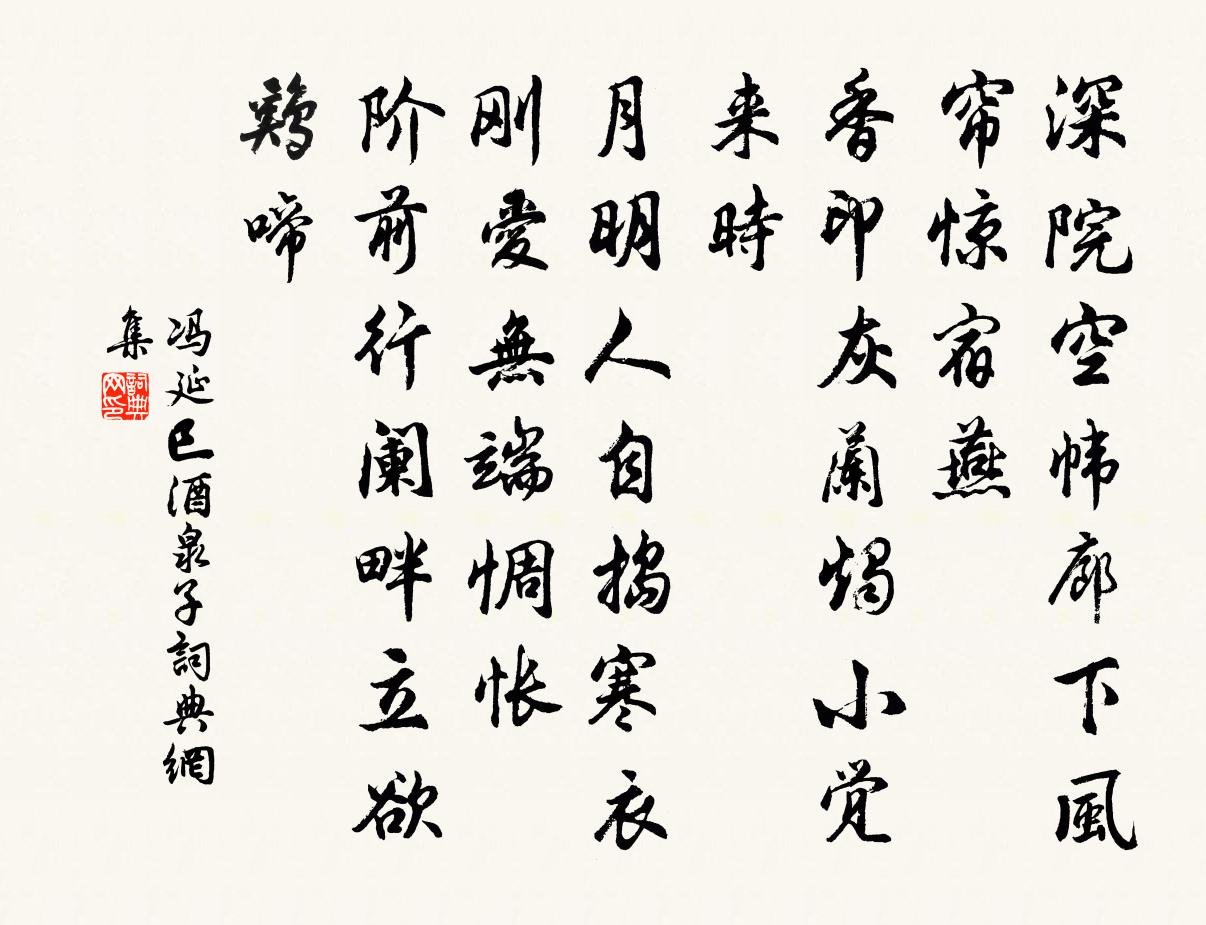 深院空帏廊下風
帘惊宿燕
香印灰蘭燭小觉
来時
月明人自搗寒衣
刚愛無端惆怅
阶前行阑畔立欲
鷄啼
冯延巳酒泉子詞典網
集
詞典网印